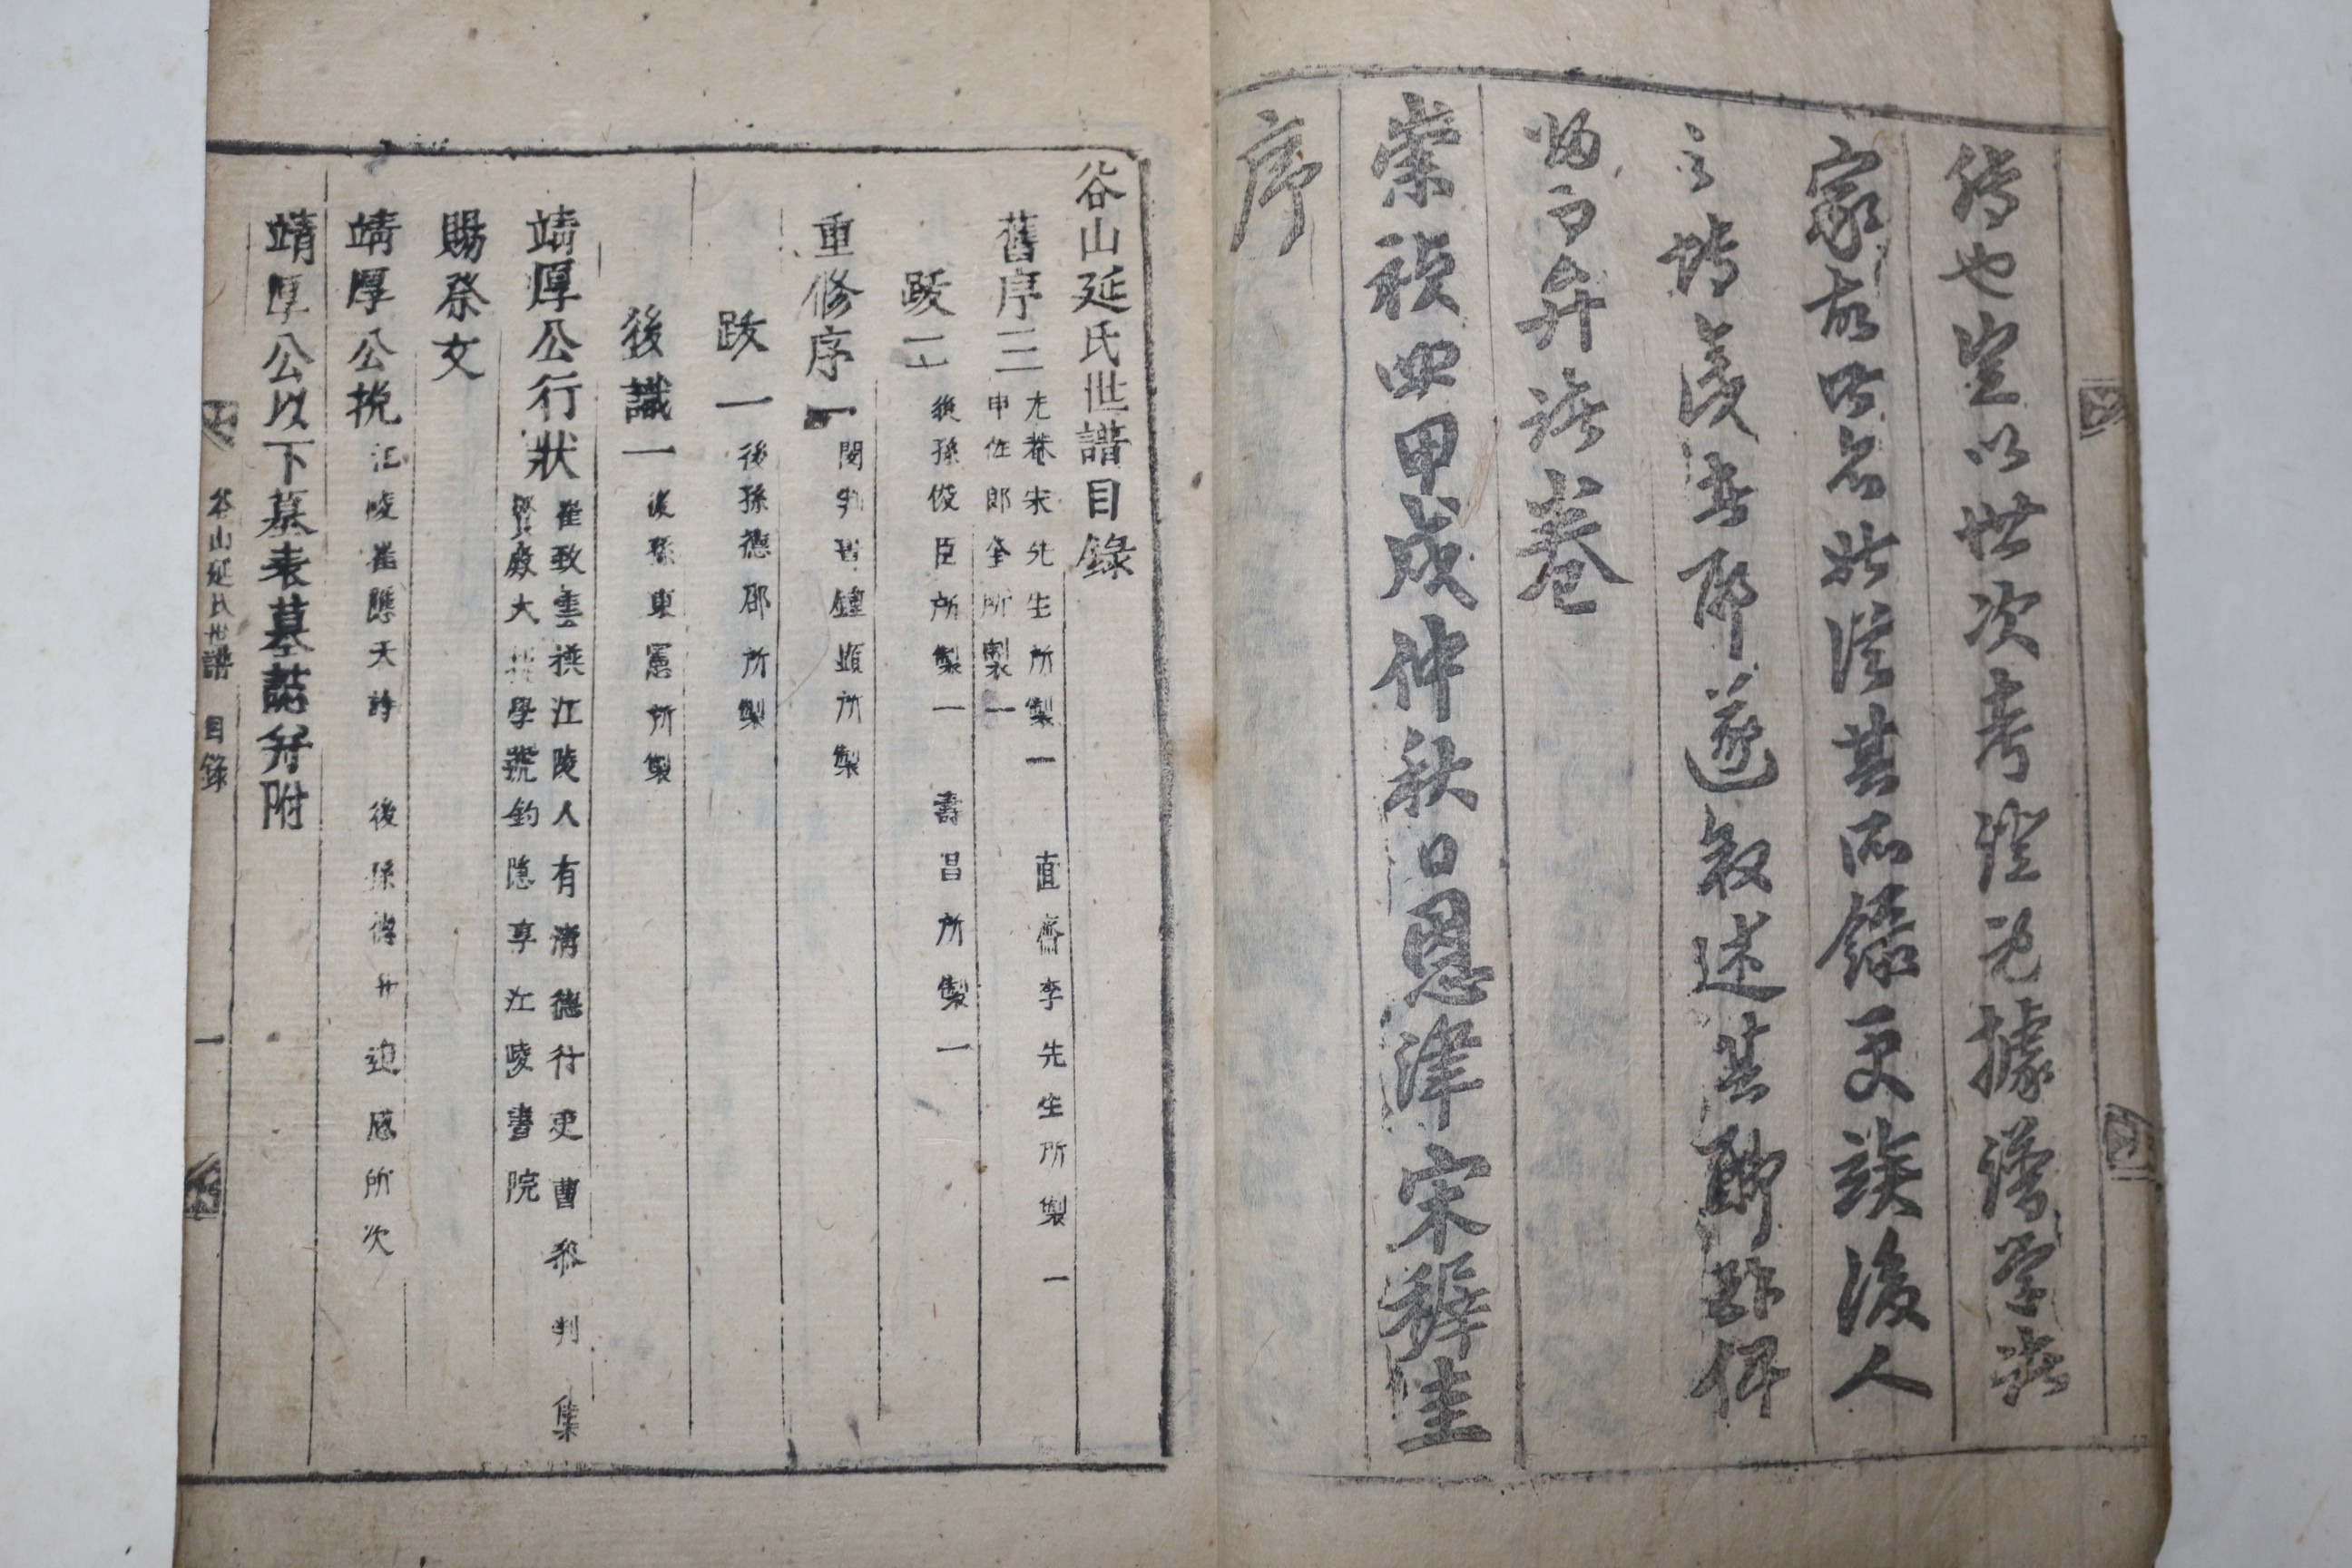 傳也豈以世次考證之據譜學者
家故略不能澄其所錄更俟後人
之皆淺者耶遂敍述其
而弁諸卷
崇禎四甲戌仲秋日恩津宋穉圭
序
谷山延氏世譜目錄
舊序三 尤菴宋先生所製一 直齋李先生所製一 申佐郎 所製一
跋二 後孫俊臣所製一 壽昌所製一
重修序一 閔判書鍾顯所製
跋一 後孫德郡所製
後識一 後孫東憲所製
靖厚公行狀 崔致雲撰江陵人有淸德行吏曹參判集賢殿大 學號釣隱享江陵書院
賜祭文
靖厚公挽 江陵崔應天詩 後孫 追感所次
靖厚公以下墓表墓誌并附
谷山延氏世譜 目錄 一